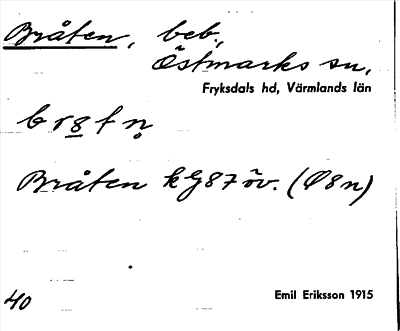 Bråten, beb.,
Östmarks sn,
Fryksdals hd, Värmlands län
br8tn̥
Bråten kG87 öv. (Ø8n)
40
Emil Eriksson 1915